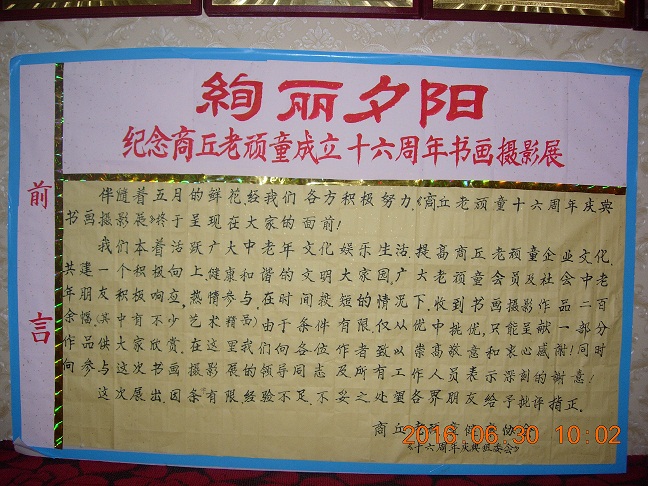 絢丽夕阳
纪念商丘老顽童成立十六周年书画摄影展
前言
伴随着五月的鲜花经我们各方积极努力.《商丘老顽童十六周年庆典
书画摄影展》终于呈现在大家的面前!
我们本着活跃广大中老年文化娱乐生活.提高商丘老顽童企业文化,
共建一个积极向上健康和谐的文明大家园.广大老顽童会员及社会中老
年朋友积极响应热情参与,在时间短的情况下,收到书画摄影作品二百
余幅(其中有不少艺术精品)由于条件有限.仅从优中挑优,只能呈献一部分
作品供大家欣赏.在这里我们向各位作者致以崇高敬意和衷心感谢!同时
向参与这次书画摄影展的领导同志及所有工作人员表示深刻的謝意!
这次展出.因条有限.经验不足.不妥之处望各界朋友给予批评指正.
商丘老顽童健康协会
《十六周年庆典组委会》
2016 06.30 10:02